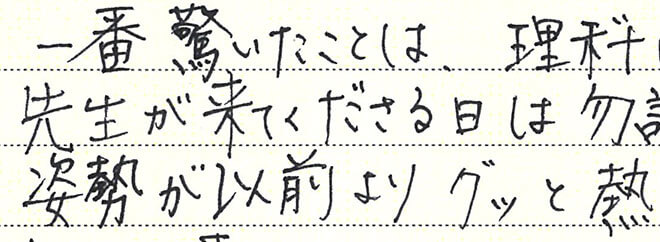 一番驚いたことは、理科
先生が来てくださる日は勿
姿勢が以前よりグッと熱